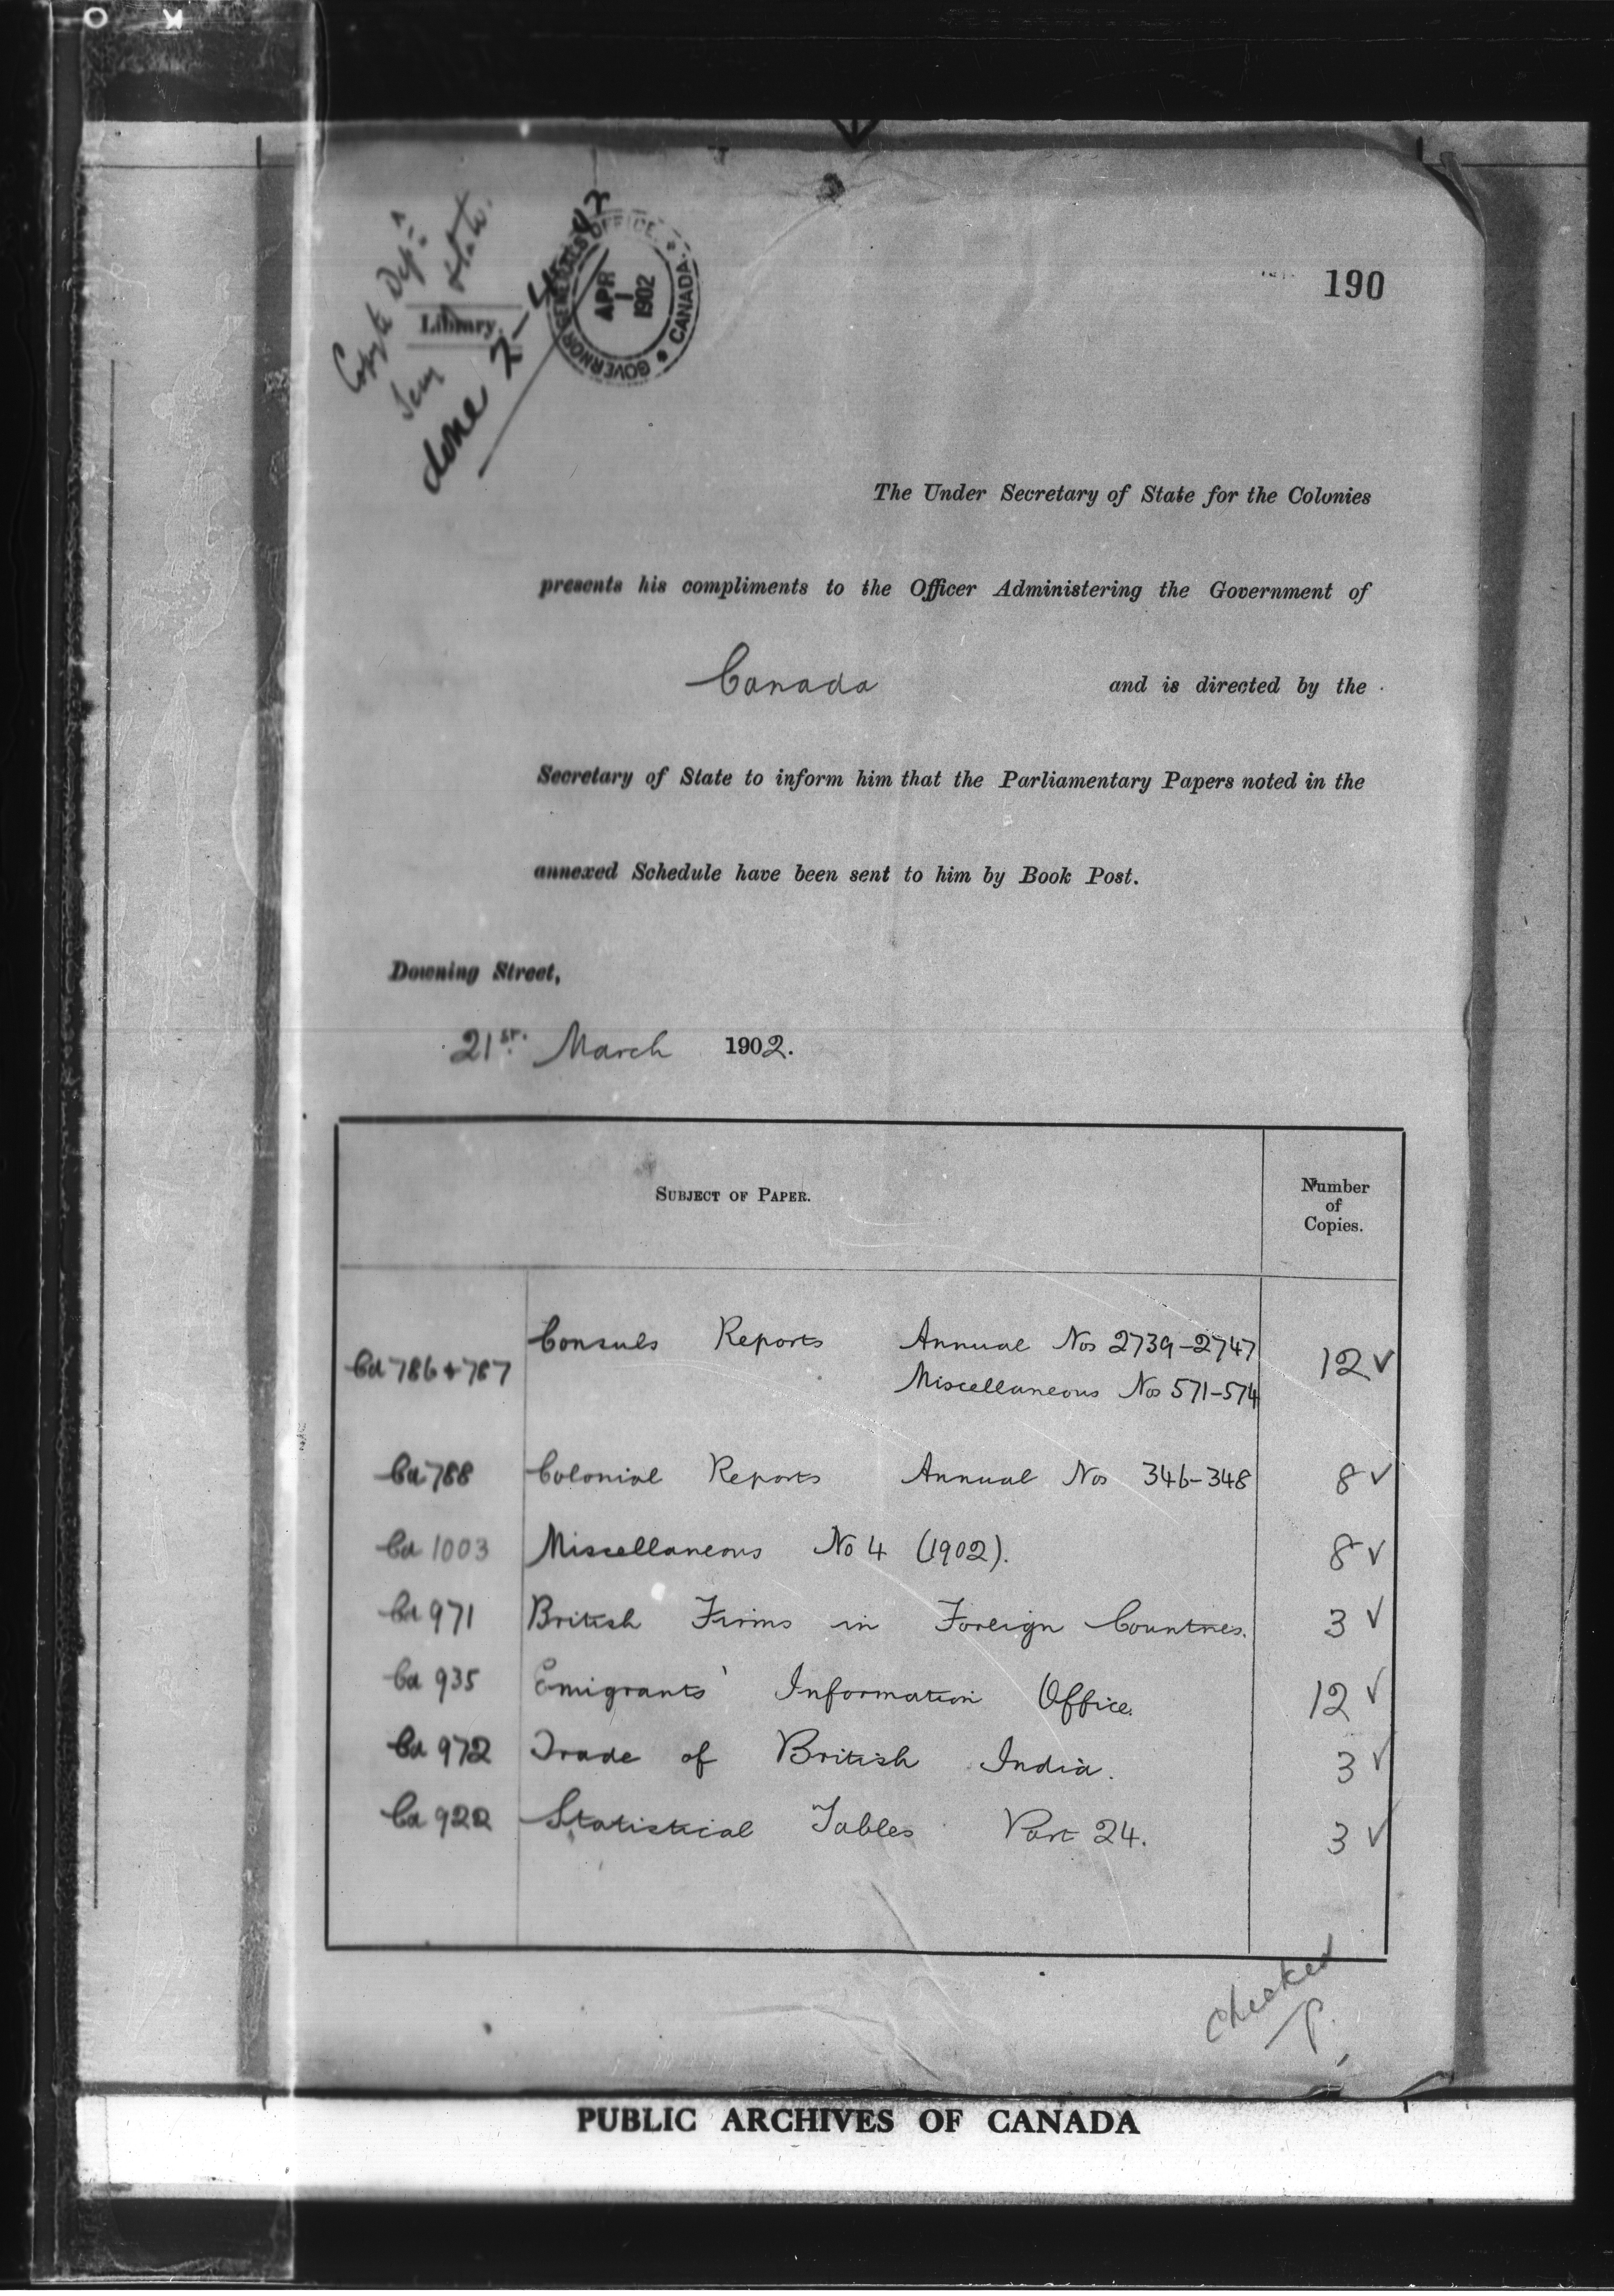 190
Copy to Dep:t
State
Library
done 2-4-02
GOVERNOR GENERAL'S OFFICE
APR
1
1902
CANADA
The Under Secretary of State for the Colonies
presents his compliments to the Officer Administering the Government of
Canada and is directed by the
Secretary of State to inform him that the Parliamentary Papers noted in the
annexed Schedule have been sent to him by Book Post.
Downing Street,
21st. March 1902.
SUBJECT OF PAPER.
Number
of
Copies.
Cd 786 & 787 Consuls Reports Annual Nos 2739-2747 12 ✓
Miscellaneous Nos 571-574
Cd 788 Colonial Reports Annual Nos 346-348 8 ✓
Cd 1003 Miscellaneous No 4 (1902). 8 ✓
Cd 971 British Firms in Foreign Countries. 3 ✓
Cd 935 Emigrants' Information Office. 12 ✓
Cd 972 Trade of British India. 3 ✓
Cd 922 Statistical Tables Part 24. 3 ✓
Checked
P.
PUBLIC ARCHIVES OF CANADA